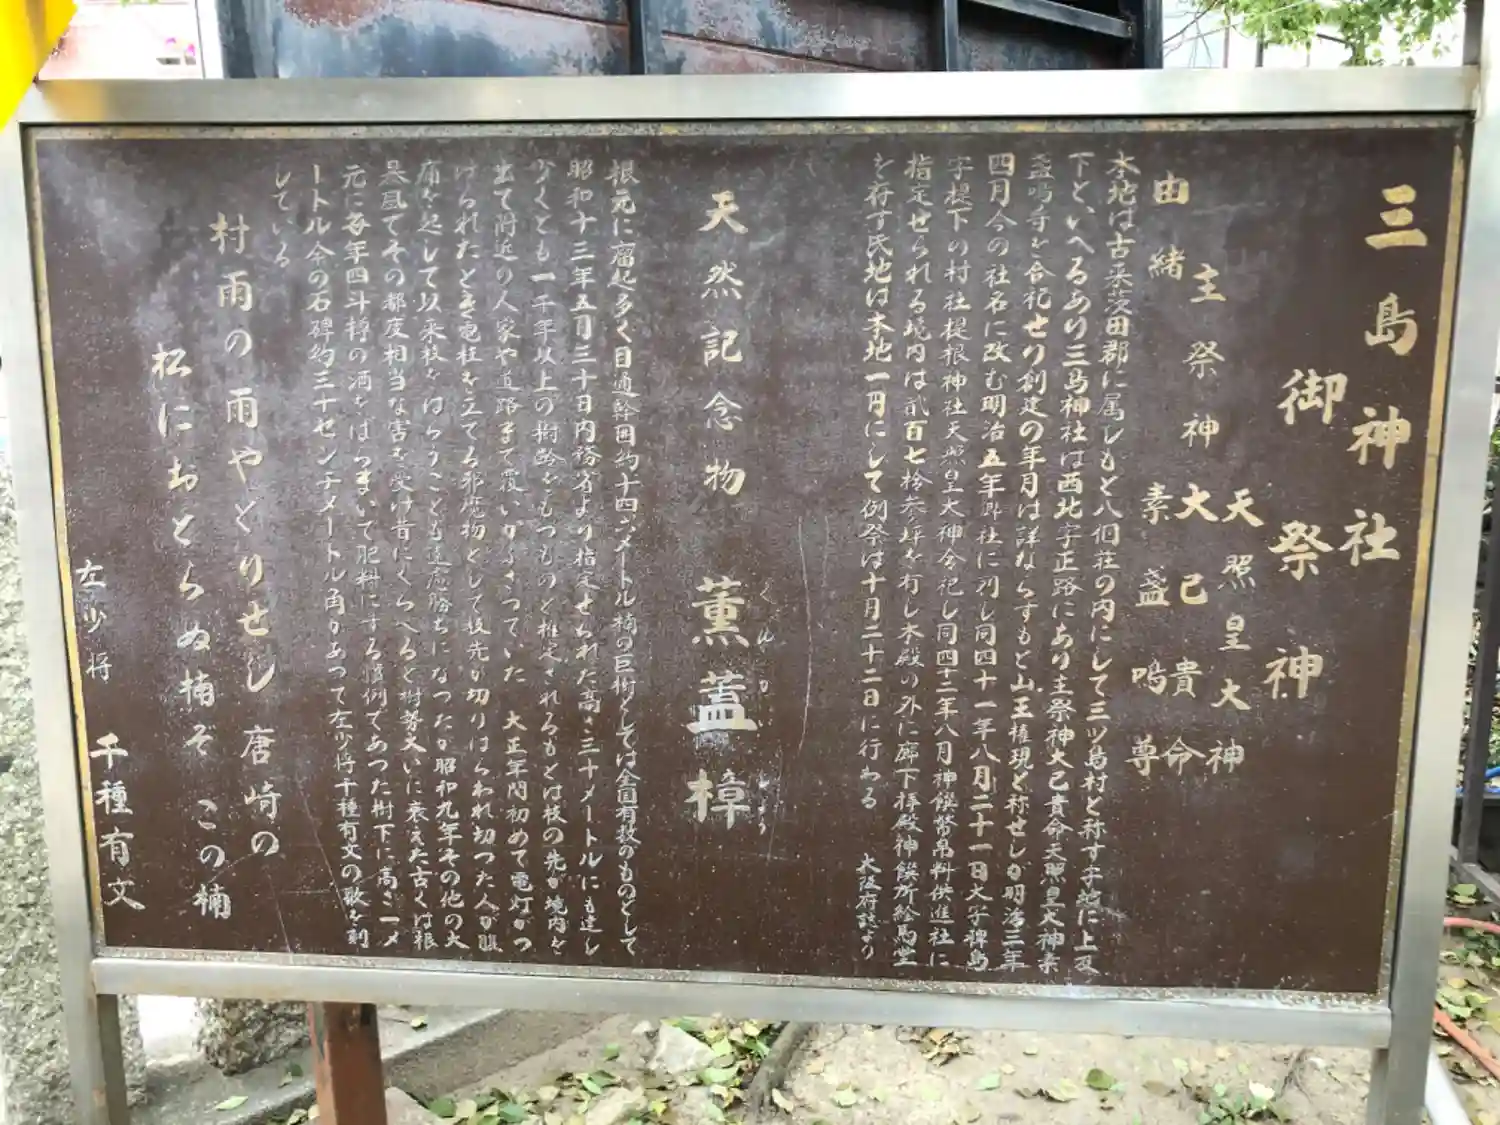 三島神社
御祭神
天照皇大神
主祭神 大己貴命
素盞鳴尊
由緒
本地は古来茨田郡に属しもと八個荘の内にして三ツ島村と称す字地に上及
下といへるあり三島神社は西北字正路にあり主祭神大己貴命天照皇大神素
盞鳴尊を合祀せり創建の年月は詳ならずもと山王権現と称せしが明治三年
四月今の社名に改む明治五年郷社に列し同四十一年八月二十一日大字稗島
字堤下の村社堤根神社天照皇大神合祀し同四十二年八月神饌幣帛料供進社に
指定せられる境内は貳百七拾参坪を有し本殿の外に廊下拝殿神饌所絵馬堂
を存す氏地は本地一円にして例祭は十月二十二日に行わる
大阪府誌より
天然記念物
薫蓋樟
くんがいしょう
根元に瘤起多く目通幹囲約十四メートル楠の巨樹としては全国有数のものとして
昭和十三年五月三十日内務省より指定せられた高さ三十メートルにも達し
少くとも一千年以上の樹齢をもつものと推定されるもとは枝の先が境内を
出て附近の人家や道路まで覆いかぶさつていた 大正年間初めて電灯がつ
けられたとき電柱を立てる邪魔物として枝先が切りはらわれ切つた人が眼
痛を起して以来枝をはらうことも遠慮勝ちになつたが昭和九年その他の大
暴風でその都度相当な害を受け昔にくらべると樹勢大いに衰えた古くは根
元に毎年四斗樽の酒をばらまいて肥料にする慣例であつた樹下に高さ一メ
ートル余の石碑約三十センチメートル角があつて左少将千種有文の歌を刻
している
村雨の雨やどりせし 唐崎の
松におとらぬ楠ぞ この楠
左少将 千種有文